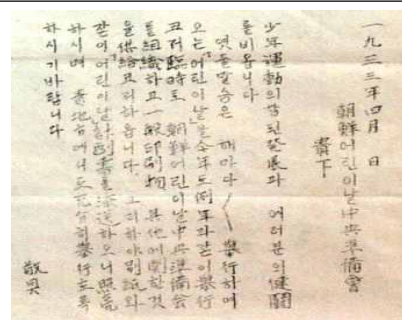 一九三三年四月 日
朝鮮어린이날中央準備會
貴下
少年運動의참된發展과 여러분의健鬪
를비옵니다
엿줄말슴은 해마다 擧行하여
오는「어린이날」을今年도例年과같이擧行
코저臨時로 朝鮮어린이날中央準備會
를組織하고一般印刷物 其他에關한것
을供給코저하옵니다. 그리하야別紙와
같이「어린이날」 하오니照亮
하시며 貴地方에서도充分히擧行토록
하시기바랍니다
敬具